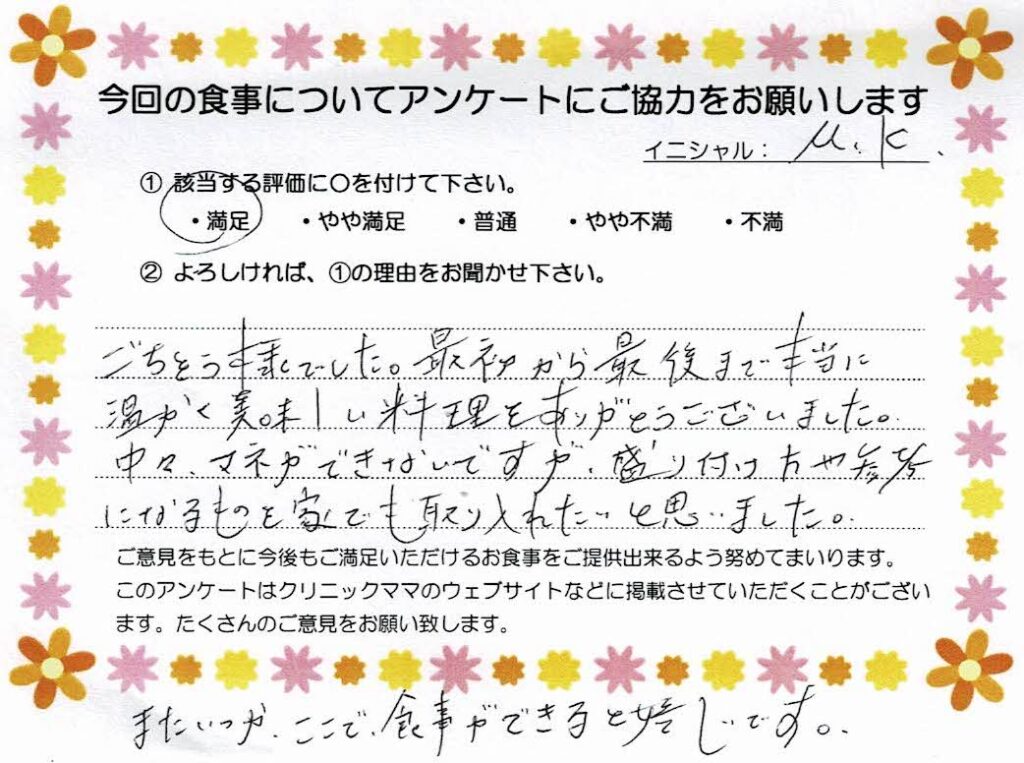 今回の食事についてアンケートにご協力をお願いします
イニシャル： M.K.
① 該当する評価に〇を付けて下さい。
・満足 ・やや満足 ・普通 ・やや不満 ・不満
② よろしければ、①の理由をお聞かせ下さい。
ごちそう様でした。最初から最後まで本当に
温かく美味しい料理をありがとうございました。
中々、マネができないですが、盛り付け方や参考
になるものを家でも取り入れたいと思いました。
ご意見をもとに今後もご満足いただけるお食事をご提供出来るよう努めてまいります。
このアンケートはクリニックママのウェブサイトなどに掲載させていただくことがござい
ます。たくさんのご意見をお願い致します。
またいつか、ここで、食事ができると嬉しいです。